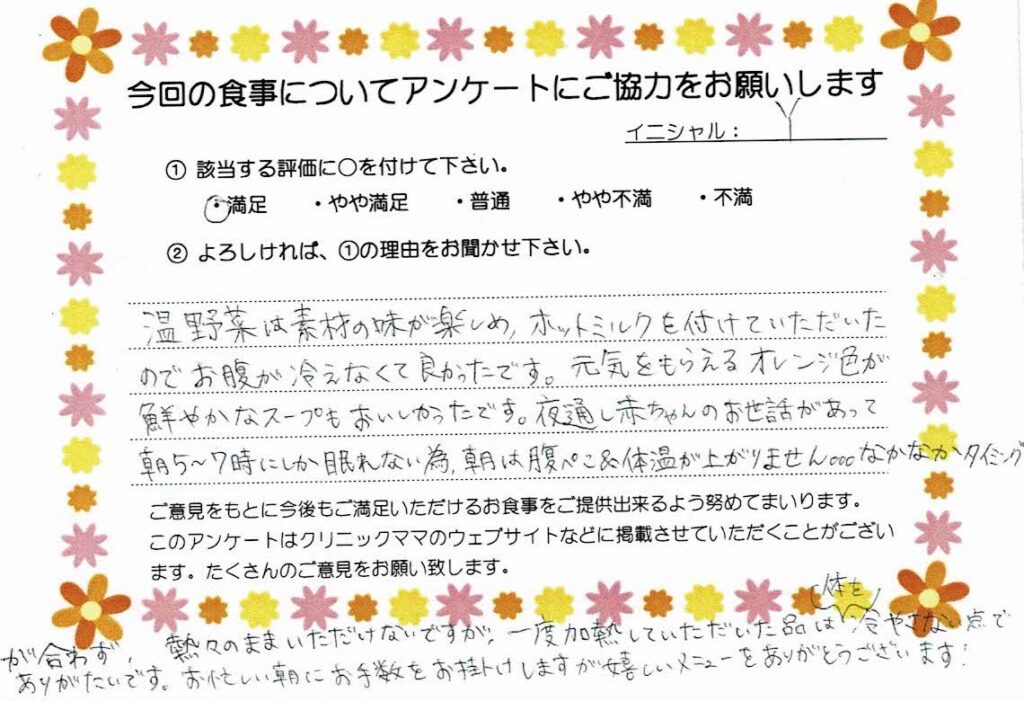 今回の食事についてアンケートにご協力をお願いします
イニシャル: Y
① 該当する評価に○を付けて下さい。
・満足 ・やや満足 ・普通 ・やや不満 ・不満
② よろしければ、①の理由をお聞かせ下さい。
温野菜は素材の味が楽しめ、ホットミルクを付けていただいた
のでお腹が冷えなくて良かったです。元気をもらえるオレンジ色が
鮮やかなスープもおいしかったです。夜通し赤ちゃんのお世話があって
朝5~7時にしか眠れない為、朝は腹ぺこ&体温が上がりません。。。なかなかタイミング
ご意見をもとに今後もご満足いただけるお食事をご提供出来るよう努めてまいります。
このアンケートはクリニックママのウェブサイトなどに掲載させていただくことがござい
ます。たくさんのご意見をお願い致します。
が合わず、熱々のままいただけないですが、一度加熱していただいた品は体を冷やさない点で
ありがたいです。お忙しい朝にお手数をお掛けしますが嬉しいメニューをありがとうございます!